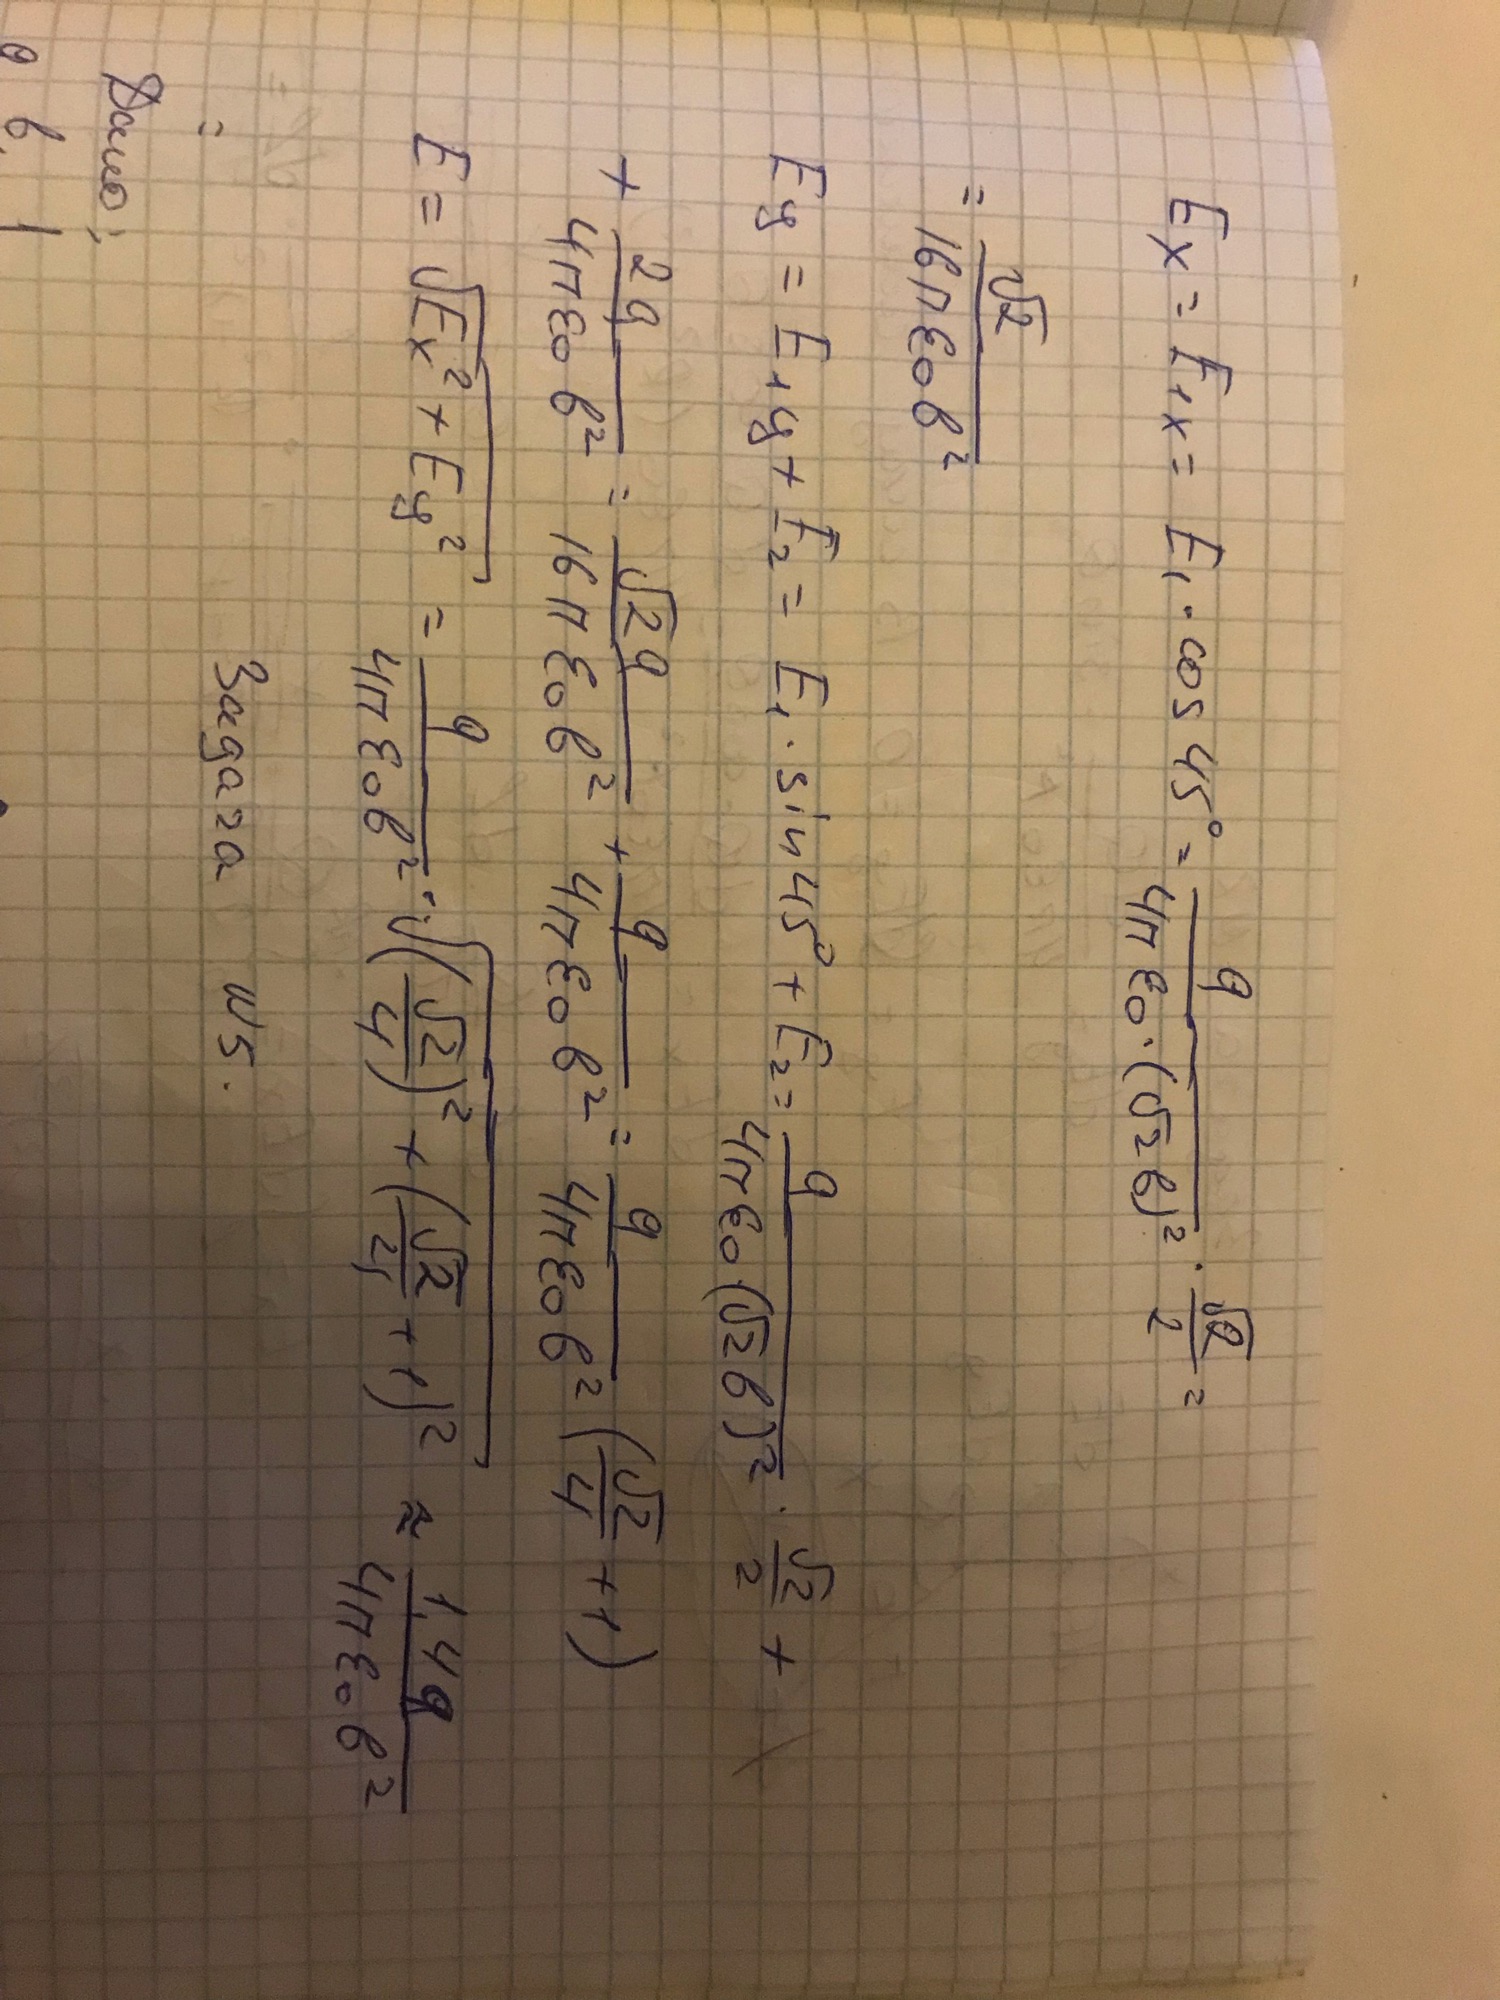 Eₓ = E₁ₓ = E₁ · cos 45° = q / (4π ε₀ · (√2 в)²) · √2/2 =
= √2 / (16π ε₀ в²)
Eᵧ = E₁ᵧ + E₂ = E₁ · sin 45° + E₂ = q / (4π ε₀ · (√2 в)²) · √2/2 +
+ 2q / (4π ε₀ в²) = √2 q / (16π ε₀ в²) + q / (4π ε₀ в²) = q / (4π ε₀ в²) (√2/4 + 1)
E = √(Eₓ² + Eᵧ²) = q / (4π ε₀ в²) · √((√2/4)² + (√2/4 + 1)²) ≈ 1,4q / (4π ε₀ в²)
Задача №5.
=
Дано: